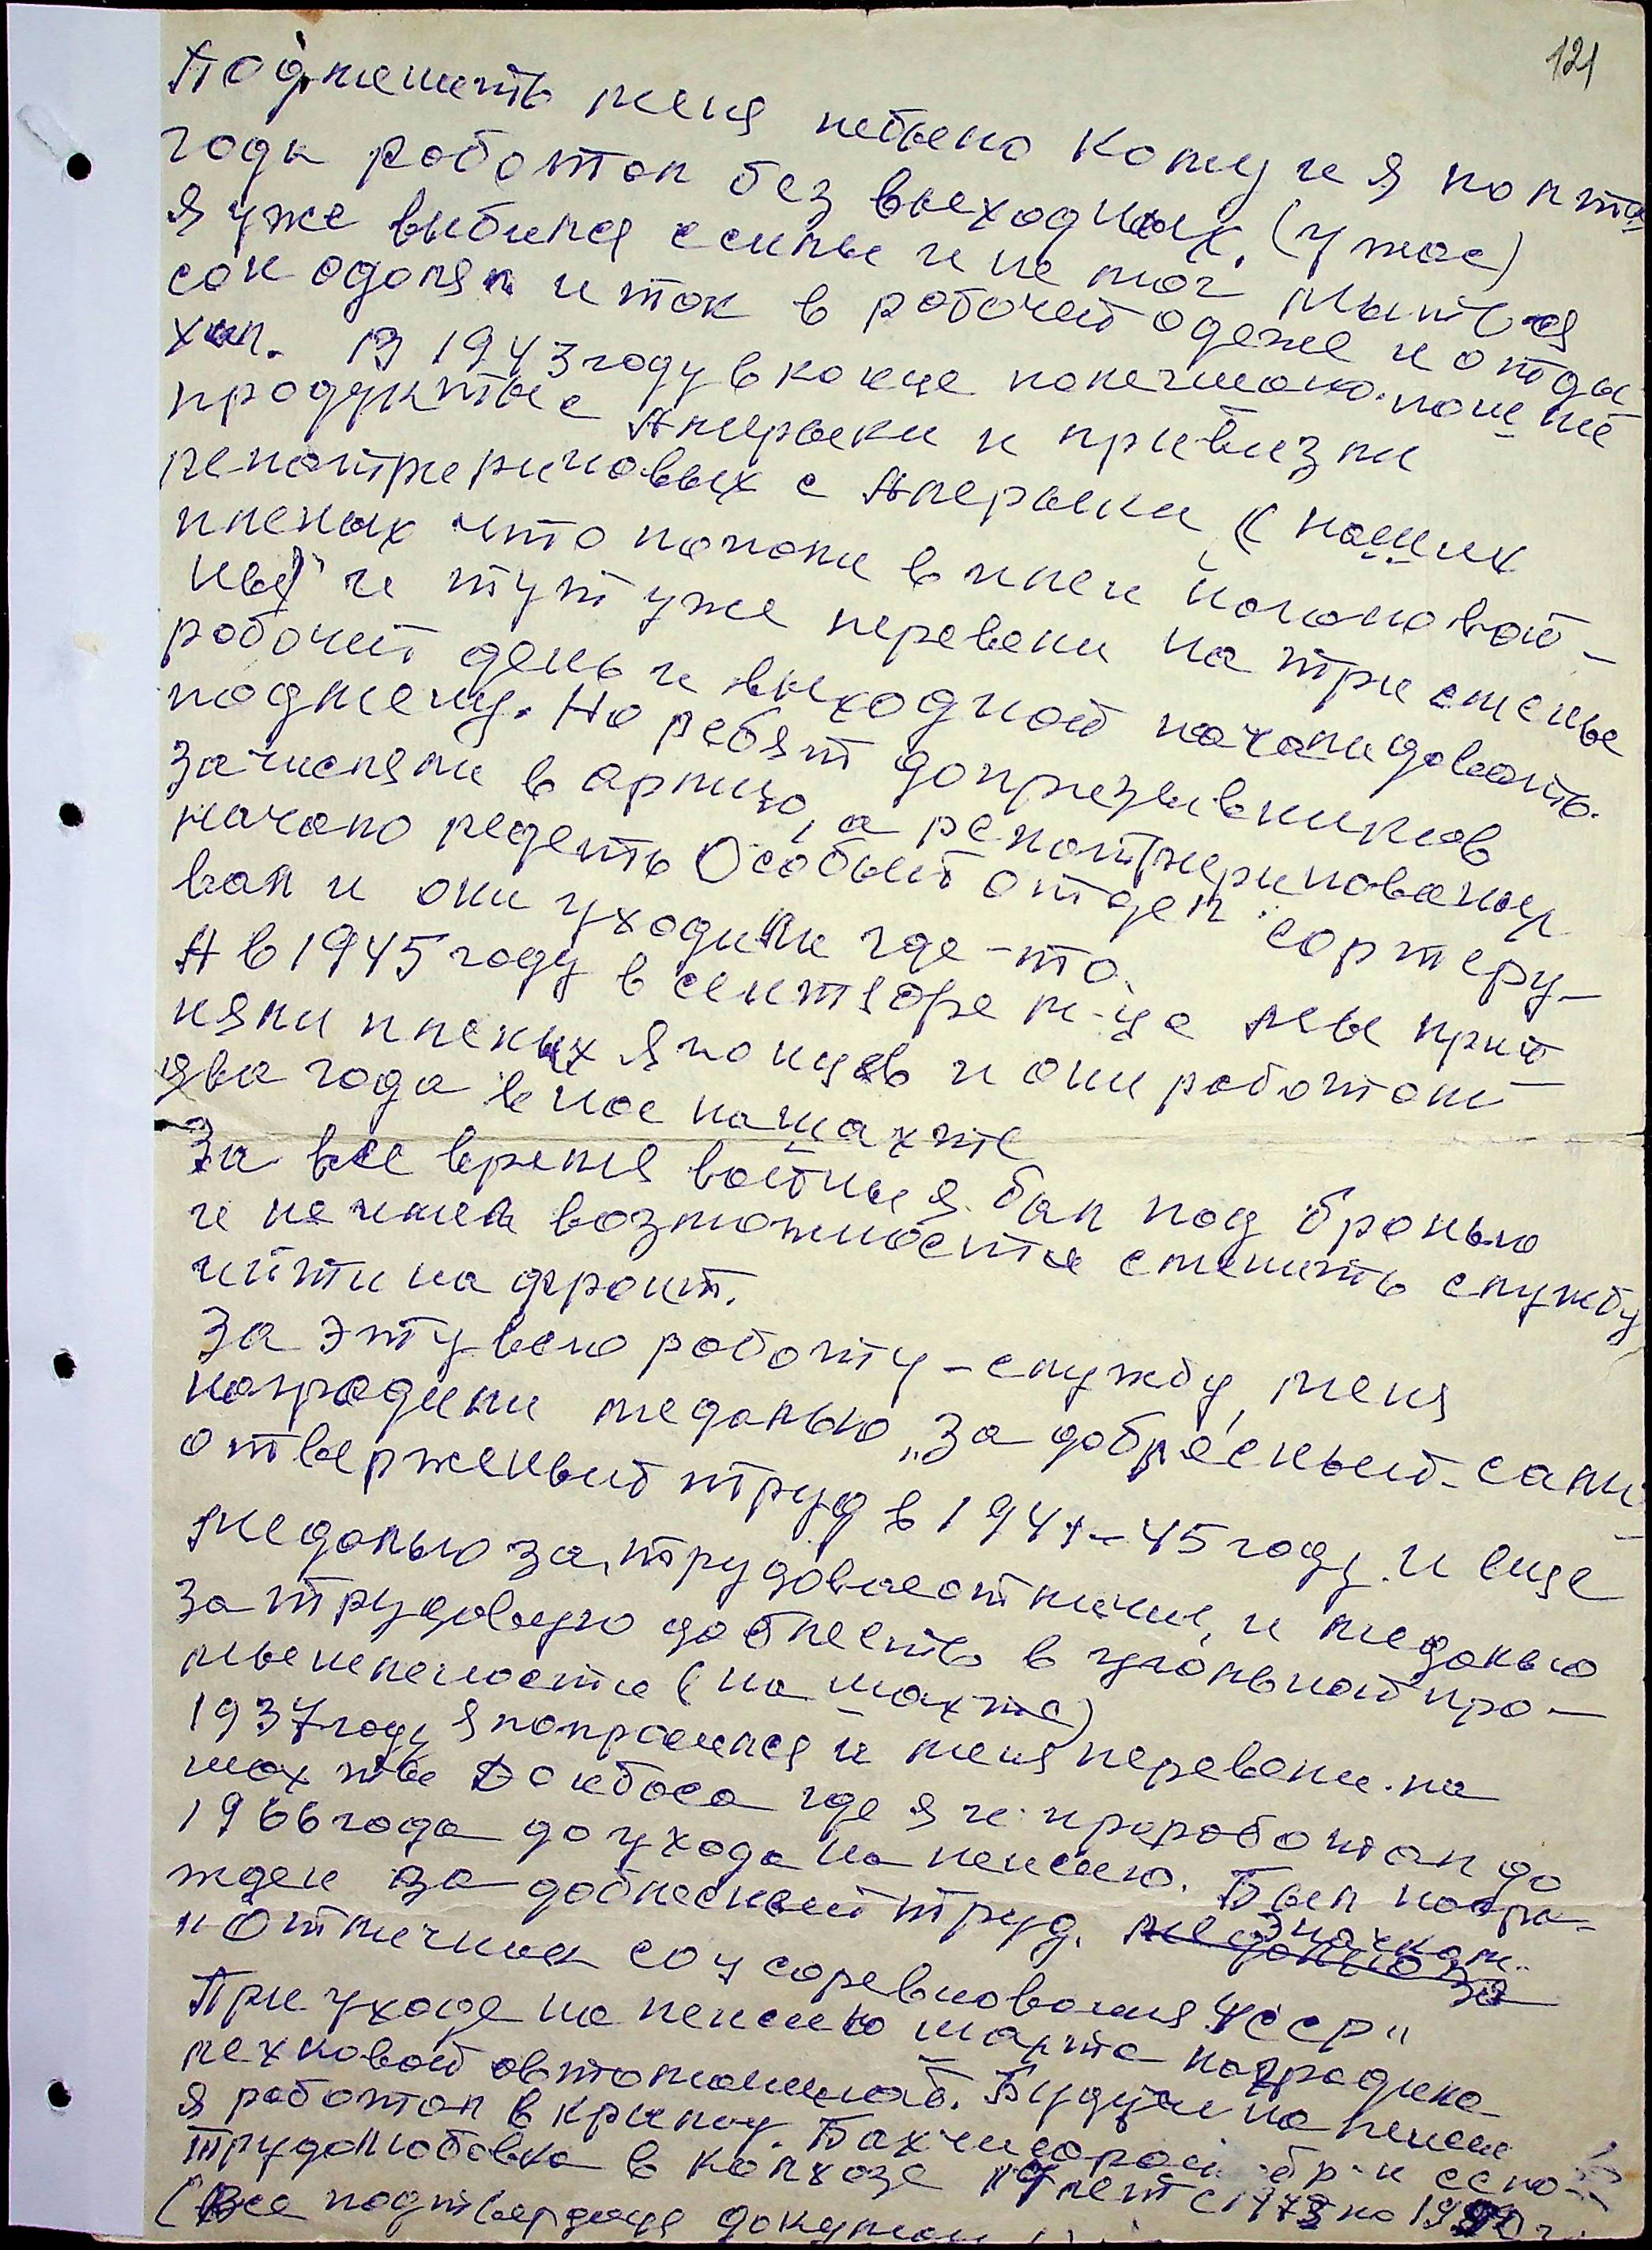 121
Подменить меня небыло кому и я полтора
года роботал без выходных. (ужас)
я уже выбился ссилы и не мог мыться
сон одолял и так в робочей одеже и отды
хал. В 1943 году в конце
продукты с Амерыки и привизли
репатрериновых с Амерыки (наших
пленых что попали в плен
и тут уже перевели на три сменые
робочей день и выходной началидовать
подмену. Но ребят допризывников
зачисляли в армию, а репатрериновоных
начало редеть Особый отдел сортеру-
вал и они уходили где-то.
А в 1945 году в сентябре м-це мы прий
няли пленых японцев и они роботали
два года в нас нашахте
За все время войны я бил под бронью
и не имел возможности сменить службу
ийти на фронт.
За эту всю роботу-службу, меня
наградили медалью "За добресный-сами
отверженый труд в 1941-45 году. и еще
медалью за, трудовыеотличие, и медалью
за трудовую доблесть в угольной про-
мышлености (на шахте)
1937году я попросился и меня перевели на
шахты Донбаса где я и проработал до
1966 года до ухода на пенсию. Был награ-
жден за доблесный труд. значком
"Отличник соцсоревнования УССР"
При уходе на пенсию шахта наградила
легковой автомашиной. Будучи на пенсии
я работал в Крыму. Бахчисарай. обр-н село
Трудолюбовка в колхозе лет с 1973 по
(Все подтверждаця